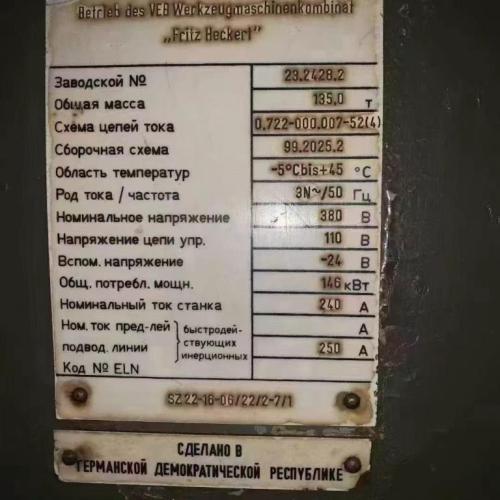 Betrieb des VEB Werkzeugmaschinenkombinat
„Fritz Heckert"
Заводской № 23.2428.2
Общая масса 135,0 т
Схема цепей тока 0.722-000.007-52(4)
Сборочная схема 99.2025.2
Область температур -5°Cbis+45 °C
Род тока / частота 3N~/50 Гц
Номинальное напряжение 380 В
Напряжение цепи упр. 110 В
Вспом. напряжение -24 В
Общ. потребл. мощн. 146 кВт
Номинальный ток станка 240 А
Ном. ток пред-лей быстродей- А
ствующих
подвод. линии инерционных 250 А
Код № ELN
SZ 22-16-06/22/2-7/1
СДЕЛАНО В
ГЕРМАНСКОЙ ДЕМОКРАТИЧЕСКОЙ РЕСПУБЛИКЕ